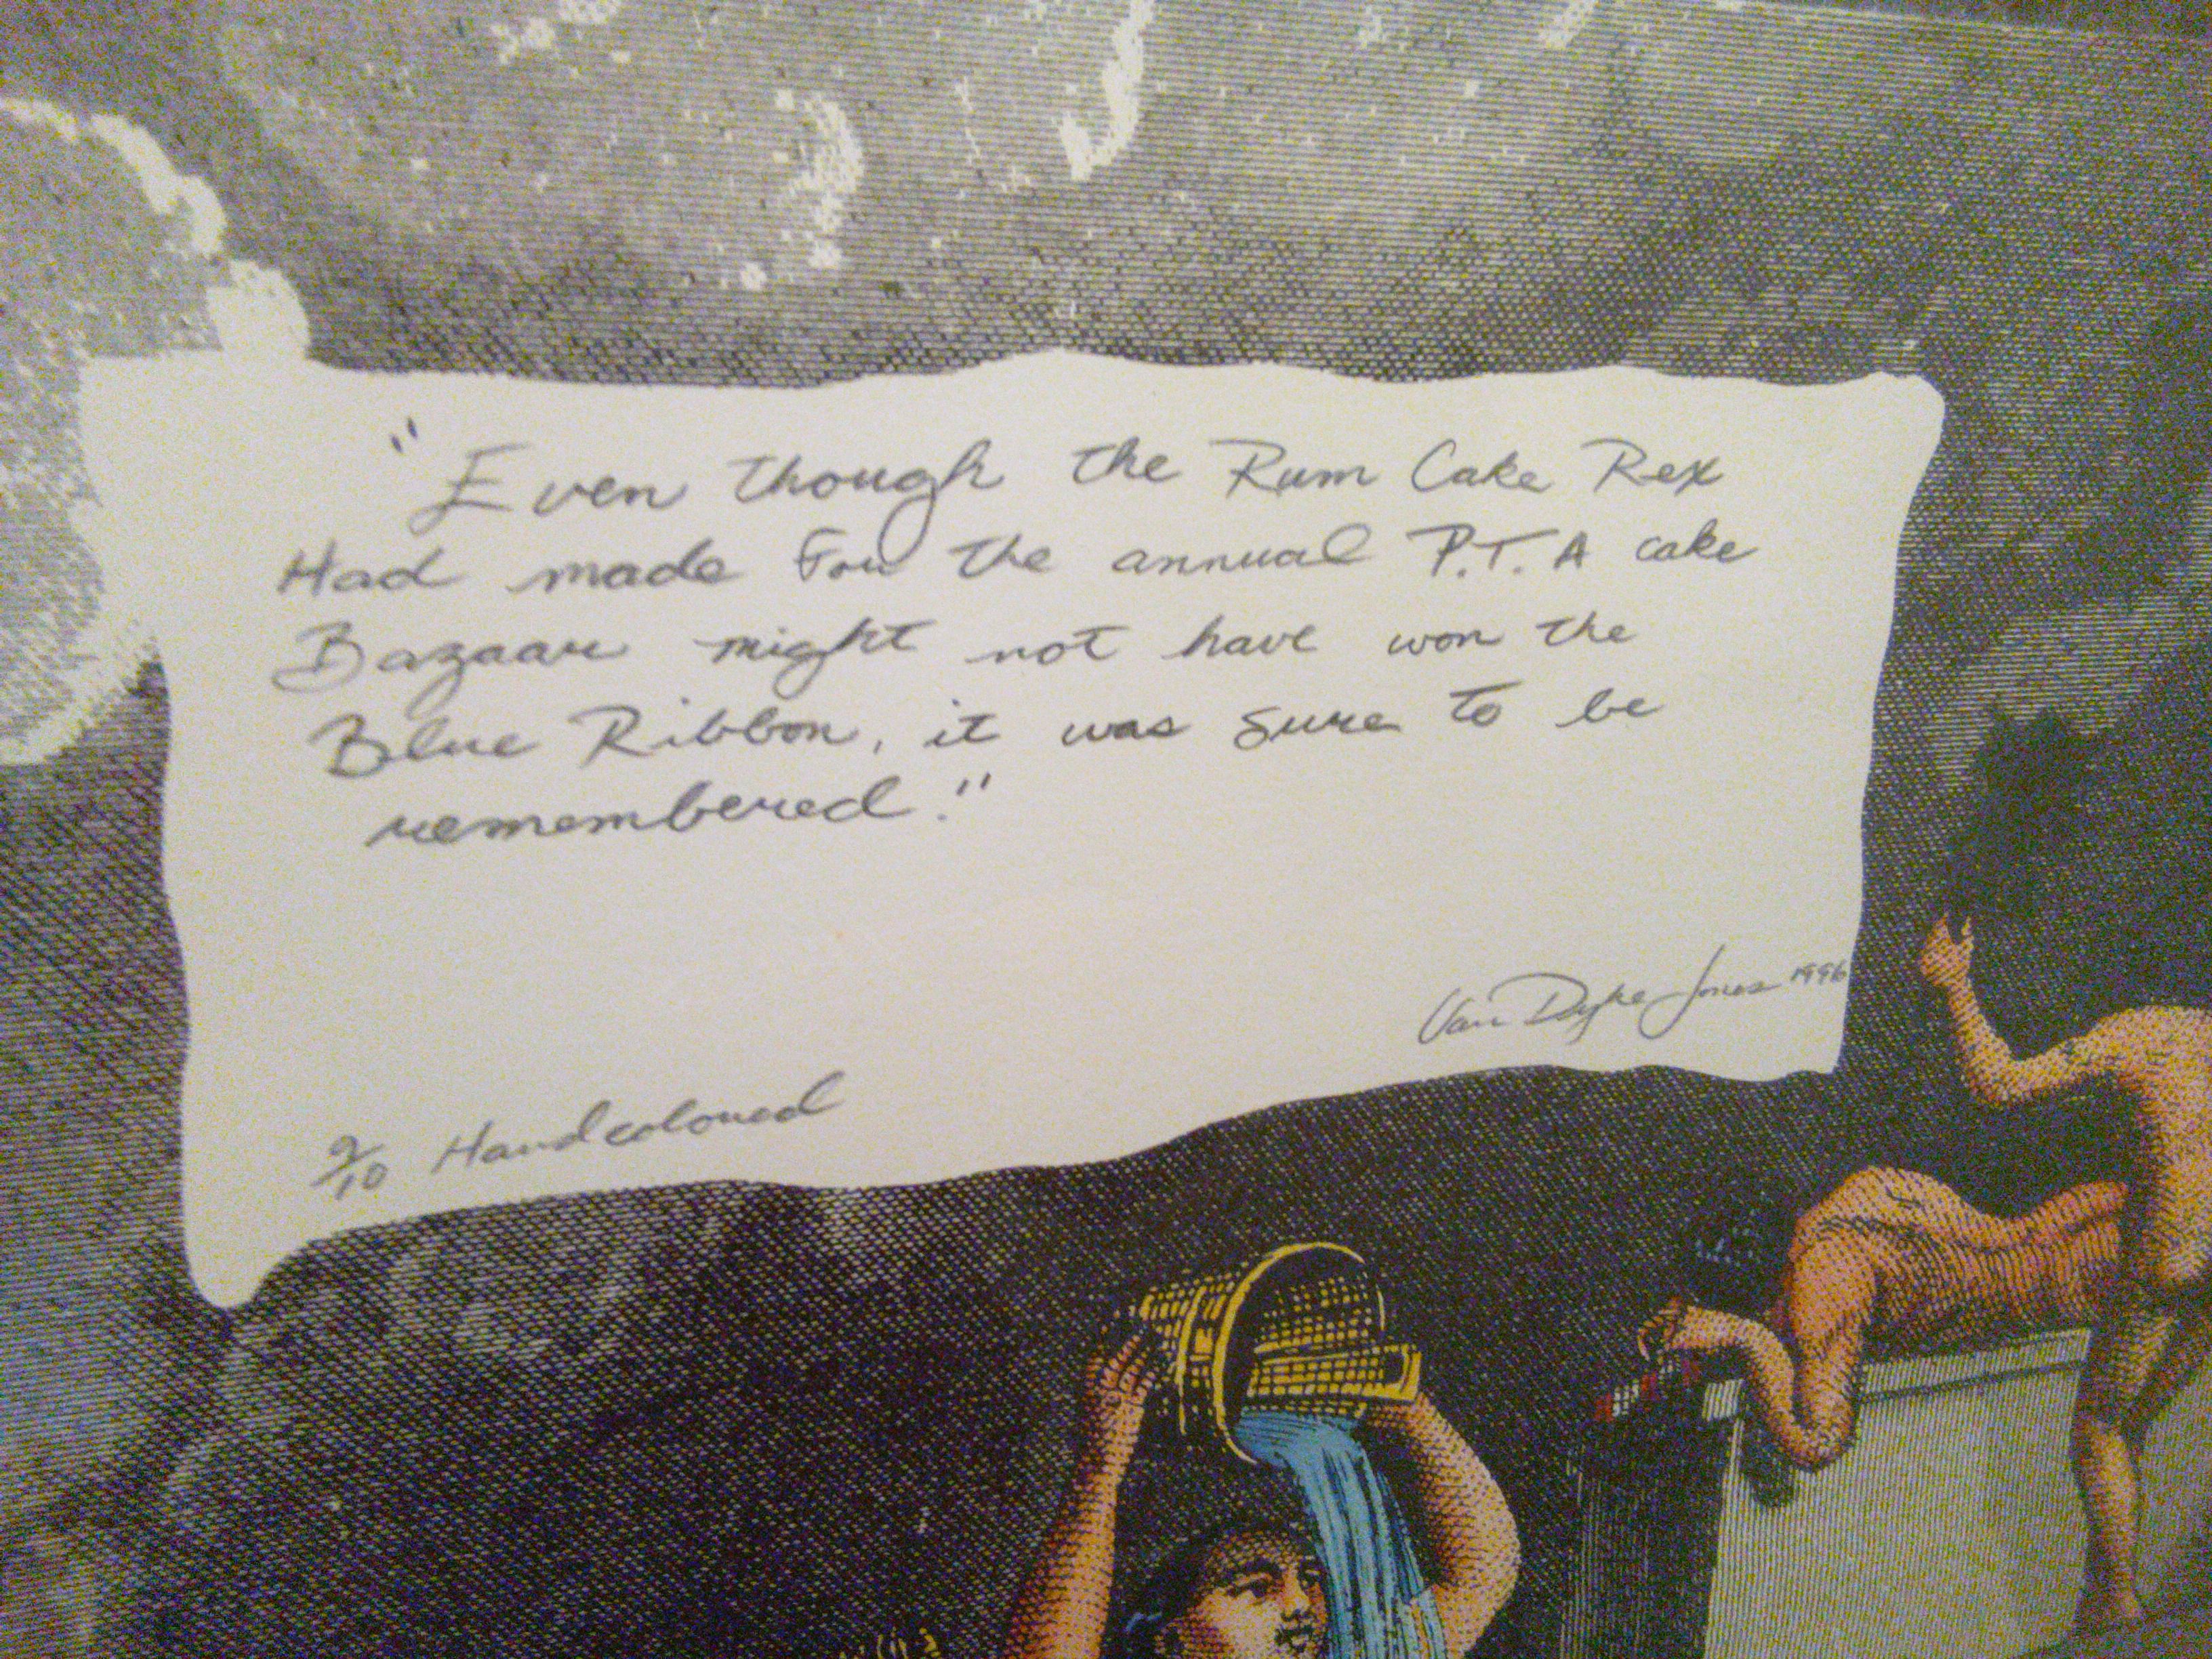 "Even though the Rum Cake Rex
Had made For the annual P.T.A cake
Bazaar might not have won the
Blue Ribbon, it was sure to be
remembered."
Van Dyke Jones 1996
9/10 Handcolored